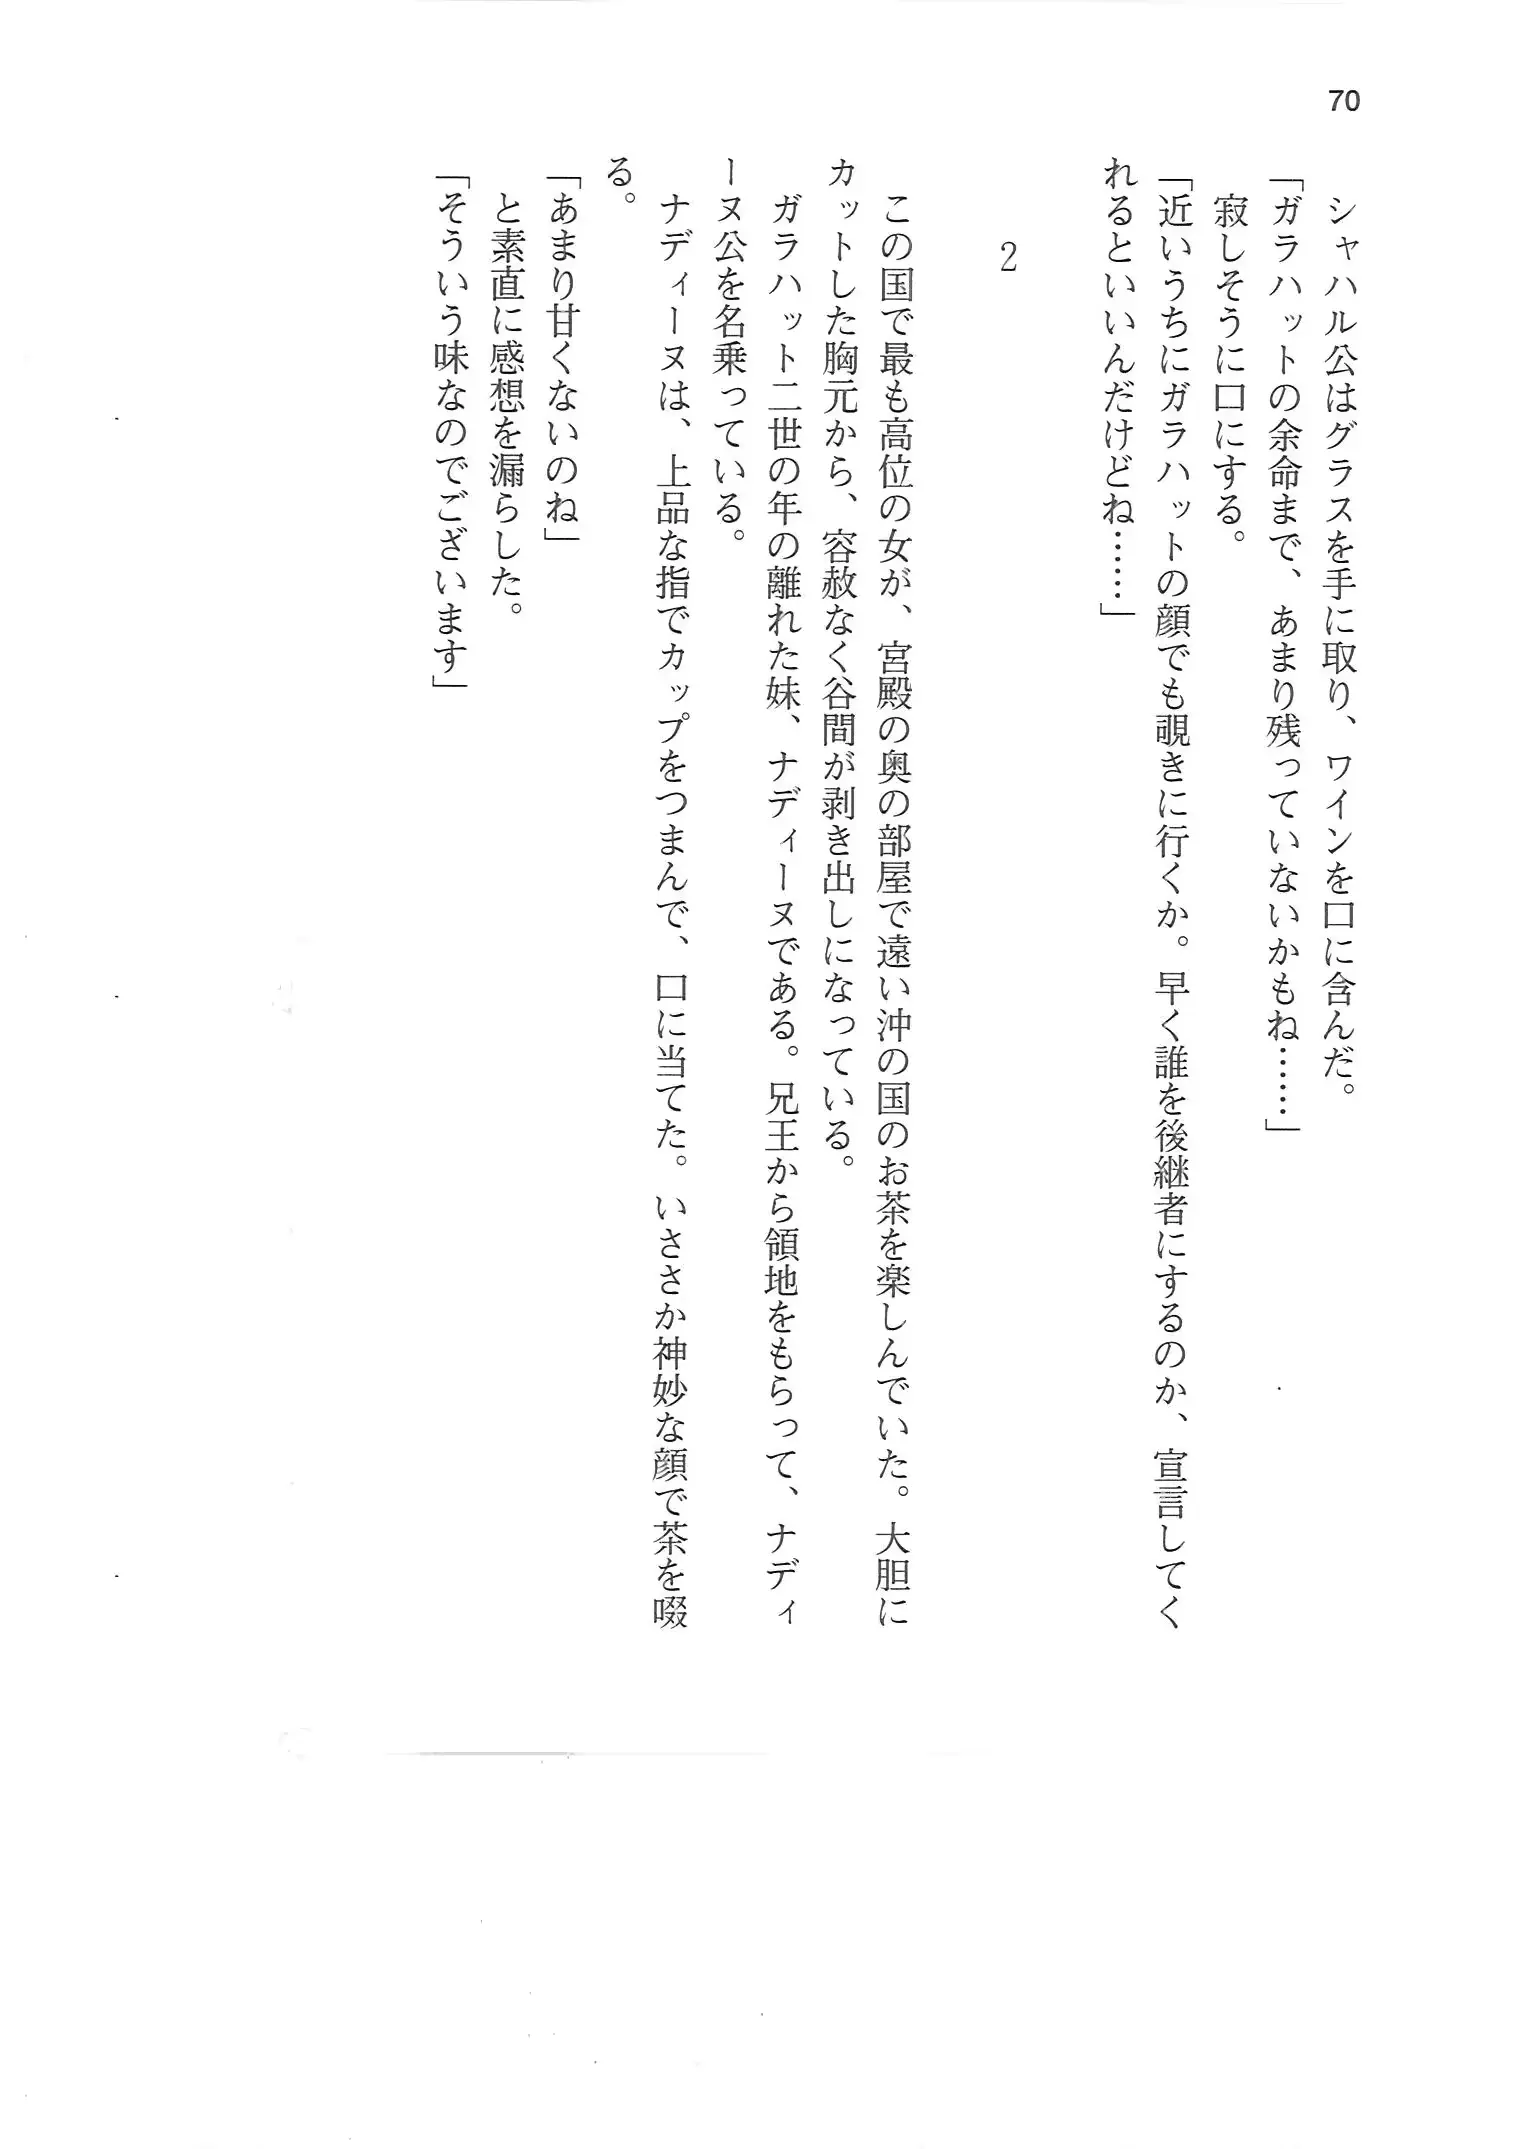 70
シャハル公はグラスを手に取り、ワインを口に含んだ。
「ガラハットの余命まで、あまり残っていないかもね……」
寂しそうに口にする。
「近いうちにガラハットの顔でも覗きに行くか。早く誰を後継者にするのか、宣言してく
れるといいんだけどね……」
2
この国で最も高位の女が、宮殿の奥の部屋で遠い沖の国のお茶を楽しんでいた。大胆に
カットした胸元から、容赦なく谷間が剥き出しになっている。
ガラハット二世の年の離れた妹、ナディーヌである。兄王から領地をもらって、ナディ
ーヌ公を名乗っている。
ナディーヌは、上品な指でカップをつまんで、口に当てた。いささか神妙な顔で茶を啜
る。
「あまり甘くないのね」
と素直に感想を漏らした。
「そういう味なのでございます」